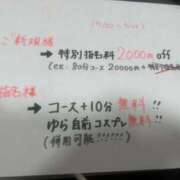 ご新規様
→ 特別指名料2000円off
(ex: 80分コース 20000円+
指名様
→ コース+10分 無料!!
ゆら自前コスプレ 無料!!
(併用可能!!!!!!)